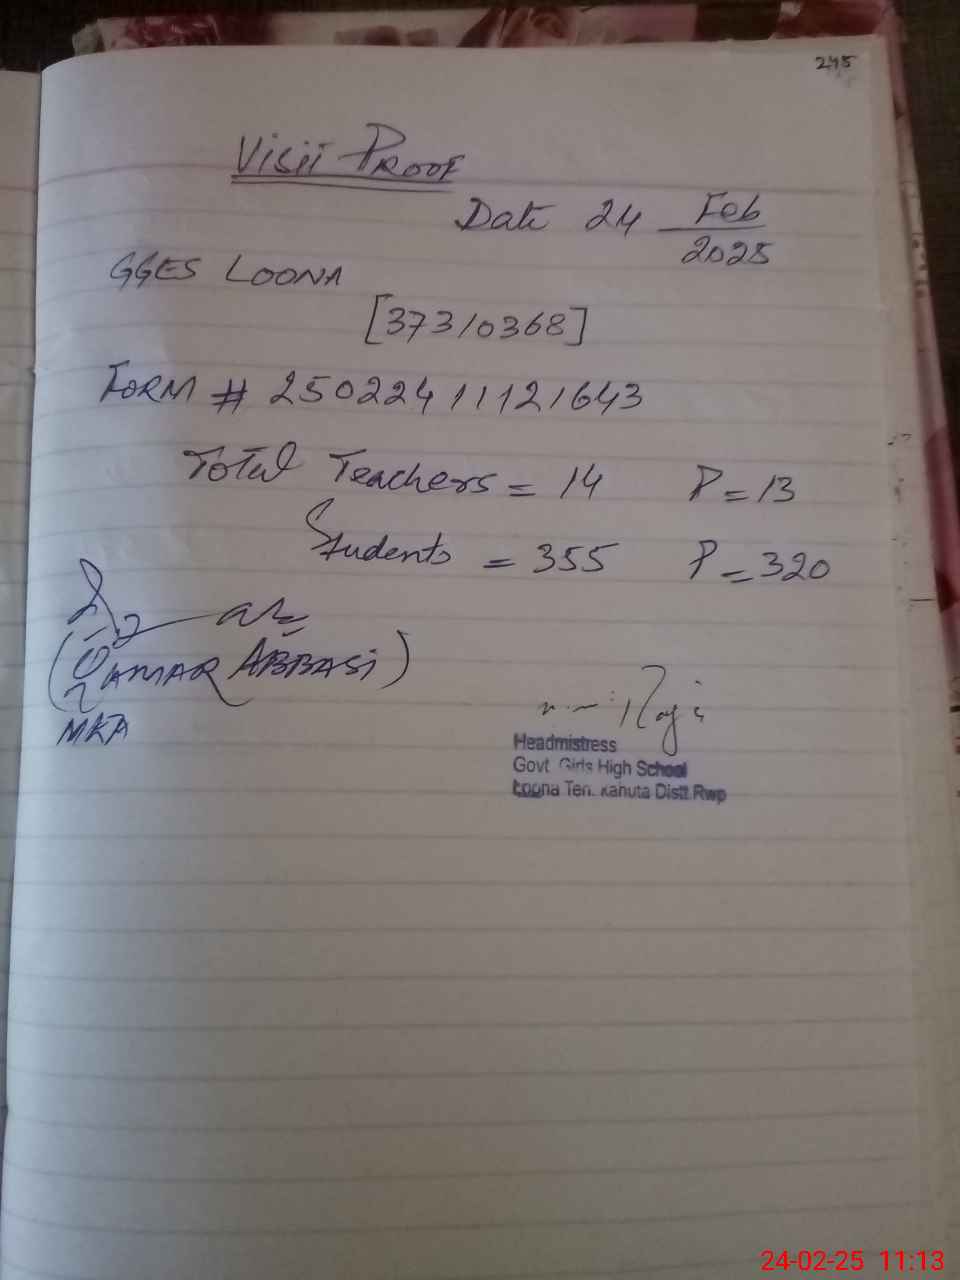 245
Visit Proof
Date 24 Feb
2025
GGES LOONA
[37310368]
FORM # 25022411121643
Total Teachers = 14 P = 13
Students = 355 P = 320
(QAMAR ABBASi)
MKA
Headmistress
Govt Girls High School
Loona Teh. Kahuta Distt.Rwp
24-02-25 11:13